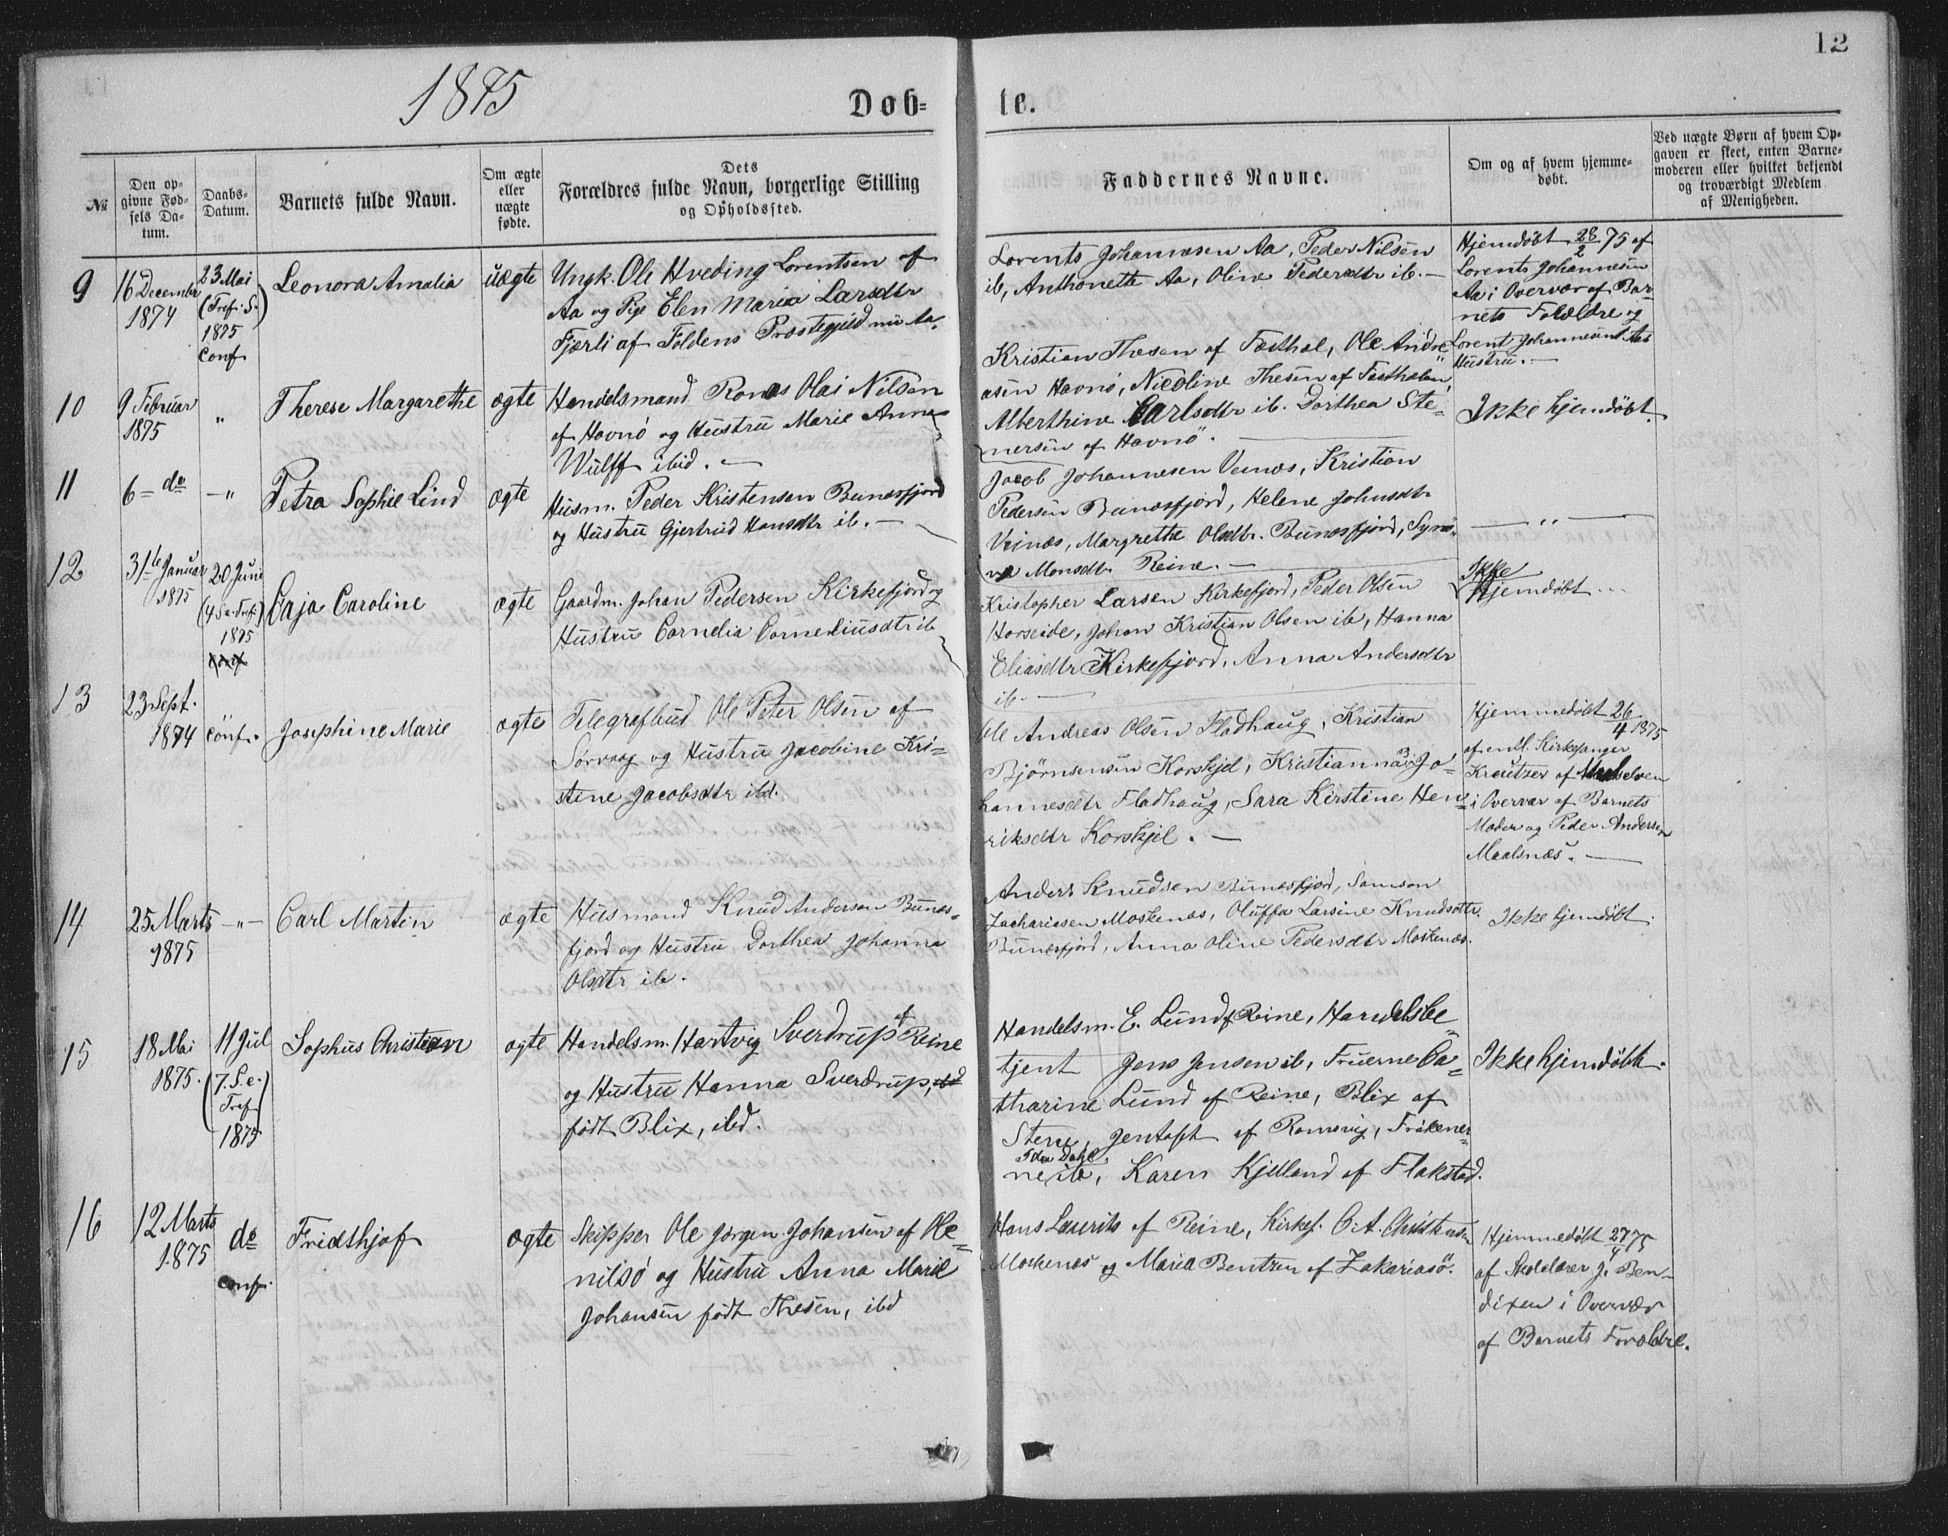 12
1875
Døb- te.
№
Den op-
givne Fød-
sels Da-
tum.
Daabs-
Datum.
Barnets fulde Navn.
Om ægte
eller
uægte
fødte.
Dets
Forældres fulde Navn, borgerlige Stilling
og Opholdssted.
Faddernes Navne.
Om og af hvem hjemme-
døbt.
Ved uægte Børn af hvem Op-
gaven er skeet, enten Barne-
moderen eller hvilket bekjendt
og troværdigt Medlem
af Menigheden.
9
16 December
1874
23 Mai
(Tref. S.)
1875
Conf
Leonora Amalia
uægte
Ungk. Ole Hveding Lorentsen af
Aa og Pige Elen Maria Larsdtr
Fjærli af Foldens Præstegjeld nu Aa.
Lorents Johannesen Aa, Peder Nilsen
ib, Anthonette Aa, Oline Pedersdtr ib. —
Hjemdøbt 28/2 75 af
Lorents Johannesen
Aa i Overvær af Bar-
nets Forældre og
Lorents Johannesens
Hustru. —
10
9 Februar
1875
"
Therese Margarethe
ægte
Handelsmand Ronas Olai Nilsen
af Havnø og Hustru Marie Anna
Wulff ibid. —
Kristian Thesen af Festhæl, Ole Andre-
asen Havnø, Nicoline Thesen af Festhælen,
Alberthine Carlsdtr ib. Dorthea Ste-
nersen af Havnø.
Ikke hjemdøbt.
11
6 — do
— "
Petra Sophie Lind
ægte
Husm. Peder Kristensen Bunesfjord
og Hustru Gjertrud Hansdtr ib. —
Jacob Johannesen Veinæs, Kristian
Pedersen Bunesfjord, Helene Johnsdtr
Veinæs, Margrethe Olsdtr. Bunesfjord, Synø-
ve Monsdtr Reine. —
— " —
12
31te Januar
1875
20 Juni
(4 S. e. Tref.)
1875
Conf
Caja Caroline
ægte
Gaardm. Johan Pedersen Kirkefjord og
Hustru Cornelia Corneliusdtr ib
Kristopher Larsen Kirkefjord, Peder Olsen
Horseide, Johan Kristian Olsen ib, Hanna
Eliasdtr Kirkefjord, Anna Andersdtr
ib. —
Ikke
Hjemdøbt
13
23 Sept.
1874
Conf.
Josephine Marie
ægte
Telegrafbud Ole Peter Olsen af
Sørvaag og Hustru Jacobine Kri-
stine Jacobsdtr ibd.
Ole Andreas Olsen Fladhaug, Kristian
Bjørnsensen Korskjel, Kristianna Jo-
hannesdtr Fladhaug, Sara Kirstine Hen-
riksdtr Korskjel. —
Hjemmedøbt 26/4 1875
af Kirkesanger
Kreutzer af Maalselven
i Overvær af Barnets
Moder og Peder Andersen
Maalsnæs. —
14
25 Marts
1875
— " —
Carl Martin
ægte
Husmand Knud Andersen Bunes-
fjord og Hustru Dorthea Johanna
Olsdtr ib.
Anders Knudsen Bunesfjord, Samson
Zachariasen Moskenæs, Oluffa Larsine Knudsdtr.
Bunesfjord, Anna Oline Pedersdtr Moskenæs.
Ikke hjemdøbt.
15
18 Mai
1875.
11 Jul
(7. S. e.
Tref)
1875
Sophus Christian
ægte
Handelsm. Hartvig Sverdrup af Reine
og Hustru Hanna Sverdrup, ibd
født Blix, ibd.
Handelsm. E. Lund af Reine, Handelsbe-
tjent Jens Jensen ib, Fruerne Ca-
tharine Lund af Reine, Blix af
Steen, Jentoft af Ramsvig, Frøkener-
ne Ida Dahl ib, Karen Kjelland af Flakstad.
Ikke hjemdøbt.
16
12 Marts
1875
do
Conf.
Fridthjof
ægte
Skipper Ole Jørgen Johansen af Ole-
nilsø og Hustru Anna Marie
Johansen født Thesen, ibd
Hans Laurits af Reine, Kirkes. O. A. Christensen
Moskenæs og Maria Bentzen af Zakariasø.
Hjemmedøbt 27/4 75
af Skolelærer J. Ben-
dixen i Overvær
af Barnets Forældre.